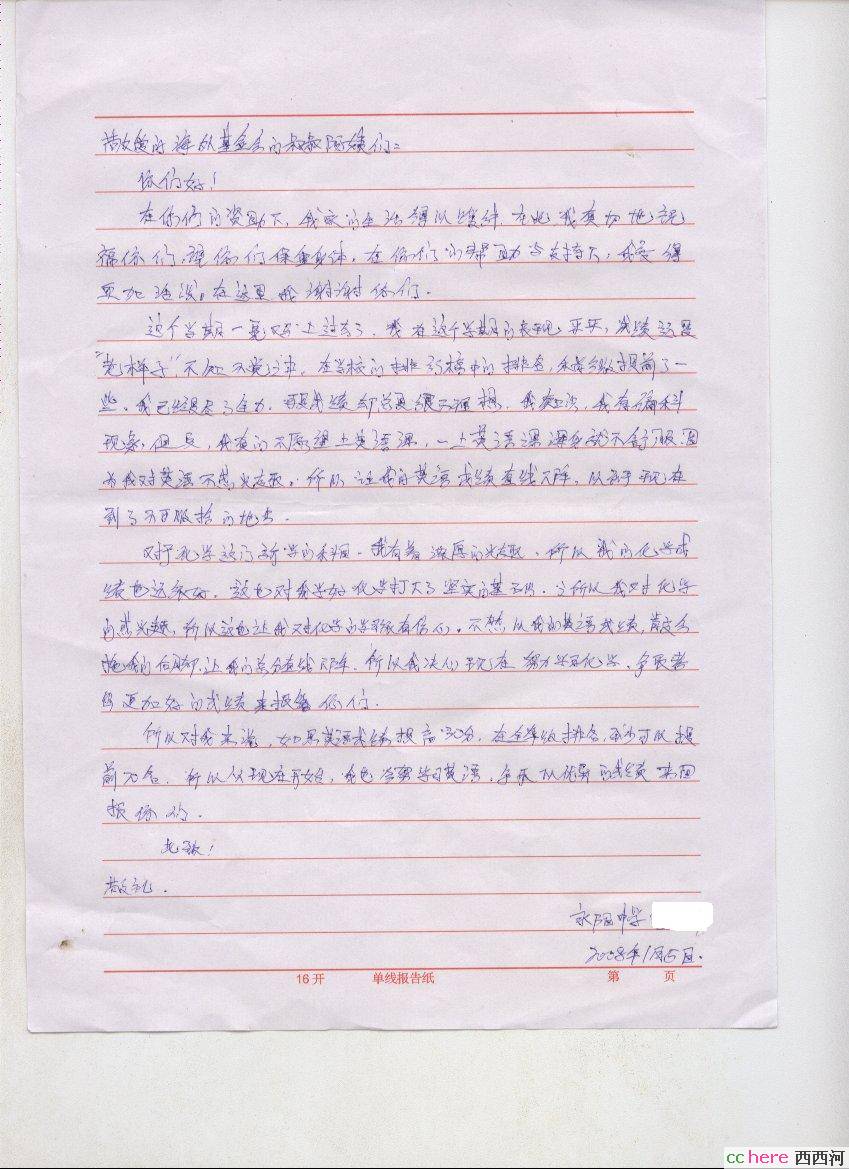 敬爱的海外基金会的叔叔阿姨们:
你们好!
在你们的资助下,我家的生活得以维持,在此,我真切地祝
福你们,望你们保重身体,在你们的帮助与支持下,我变得
更加活泼。在这里我谢谢你们。
这个学期一晃又过去了,我在这个学期的表现,成绩还是
"老样子"不好不坏,在学校的排行榜中的排名,提前了一
些。我已经尽了全力,可是成绩却总是很不理想,我有偏科
现象,但是,我真的不愿望上英语课,一上英语课浑身就不舒服,因
为我对英语不感兴趣。所以让我的英语成绩直线下降,以至于现在
到了不可收拾的地步。
对于化学这门新学的科目,我有着浓厚的兴趣,所以我的化学成
绩也还很好。这也对我学好化学打下了坚实的基础,所以我对化学
的感兴趣,所以这也让我对化学的学习很有信心。不然,以我的英语成绩,肯定会
拖我的后脚,让我的总分直线下降,所以我决心现在努力学习化学,争取考
出更加好的成绩来报答你们。
所以对我来说,如果英语成绩提高30分,在全年级排名,至少可以提
前70名,所以从现在开始,我也会努力学习英语,争取以优异的成绩来回
报你们。
此致!
敬礼.
永阳中学
2008年1月5日.
16开 单线报告纸 第 页
cchere 西西河